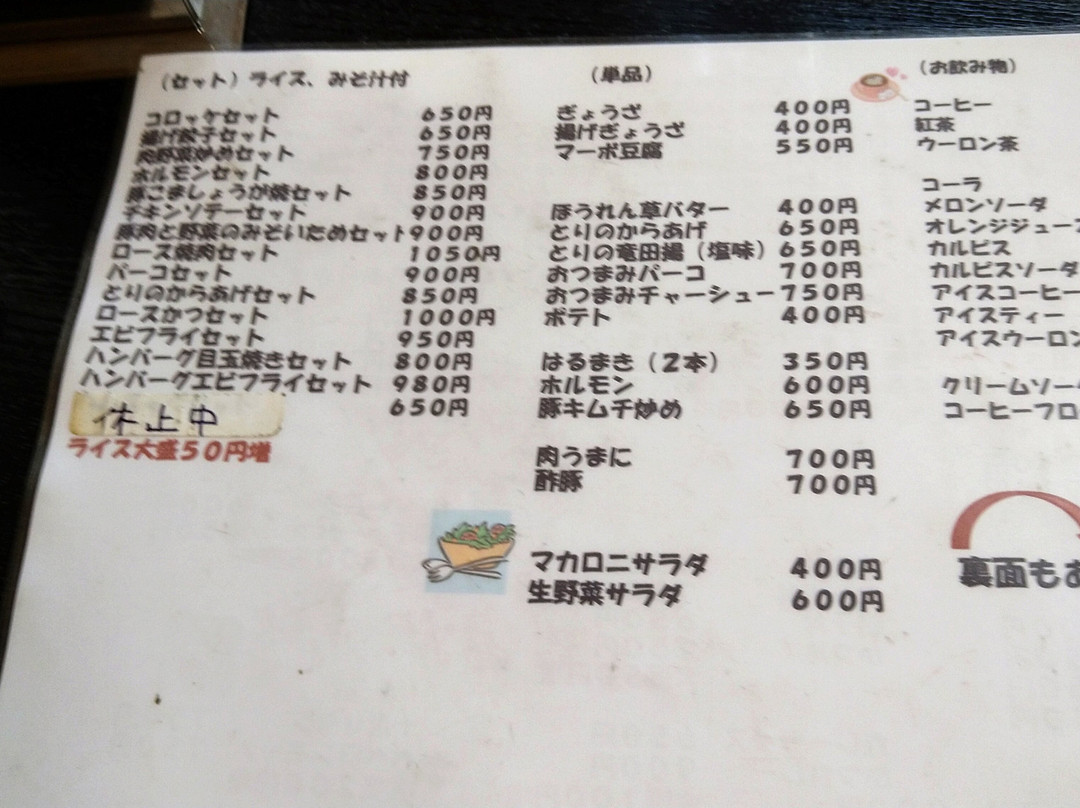 （セット）ライス、みそ汁付
コロッケセット 650円
揚げ餃子セット 650円
肉野菜炒めセット 750円
ホルモンセット 800円
豚こましょうが焼セット 850円
チキンソテーセット 900円
豚肉と野菜のみそいためセット 900円
ロース焼肉セット 1050円
パーコセット 900円
とりのからあげセット 850円
ロースかつセット 1000円
エビフライセット 950円
ハンバーグ目玉焼きセット 800円
ハンバーグエビフライセット 980円
休止中 650円
ライス大盛50円増
（単品）
ぎょうざ 400円
揚げぎょうざ 400円
マーボ豆腐 550円
ほうれん草バター 400円
とりのからあげ 650円
とりの竜田揚（塩味） 650円
おつまみパーコ 700円
おつまみチャーシュー 750円
ポテト 400円
はるまき（2本） 350円
ホルモン 600円
豚キムチ炒め 650円
肉うまに 700円
酢豚 700円
マカロニサラダ 400円
生野菜サラダ 600円
（お飲み物）
コーヒー
紅茶
ウーロン茶
コーラ
メロンソーダ
オレンジジュース
カルピス
カルピスソーダ
アイスコーヒー
アイスティー
アイスウーロン
クリームソー
コーヒーフロ
裏面もあ